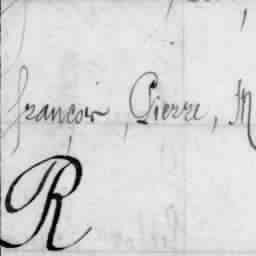 françois, Pierre, M
R